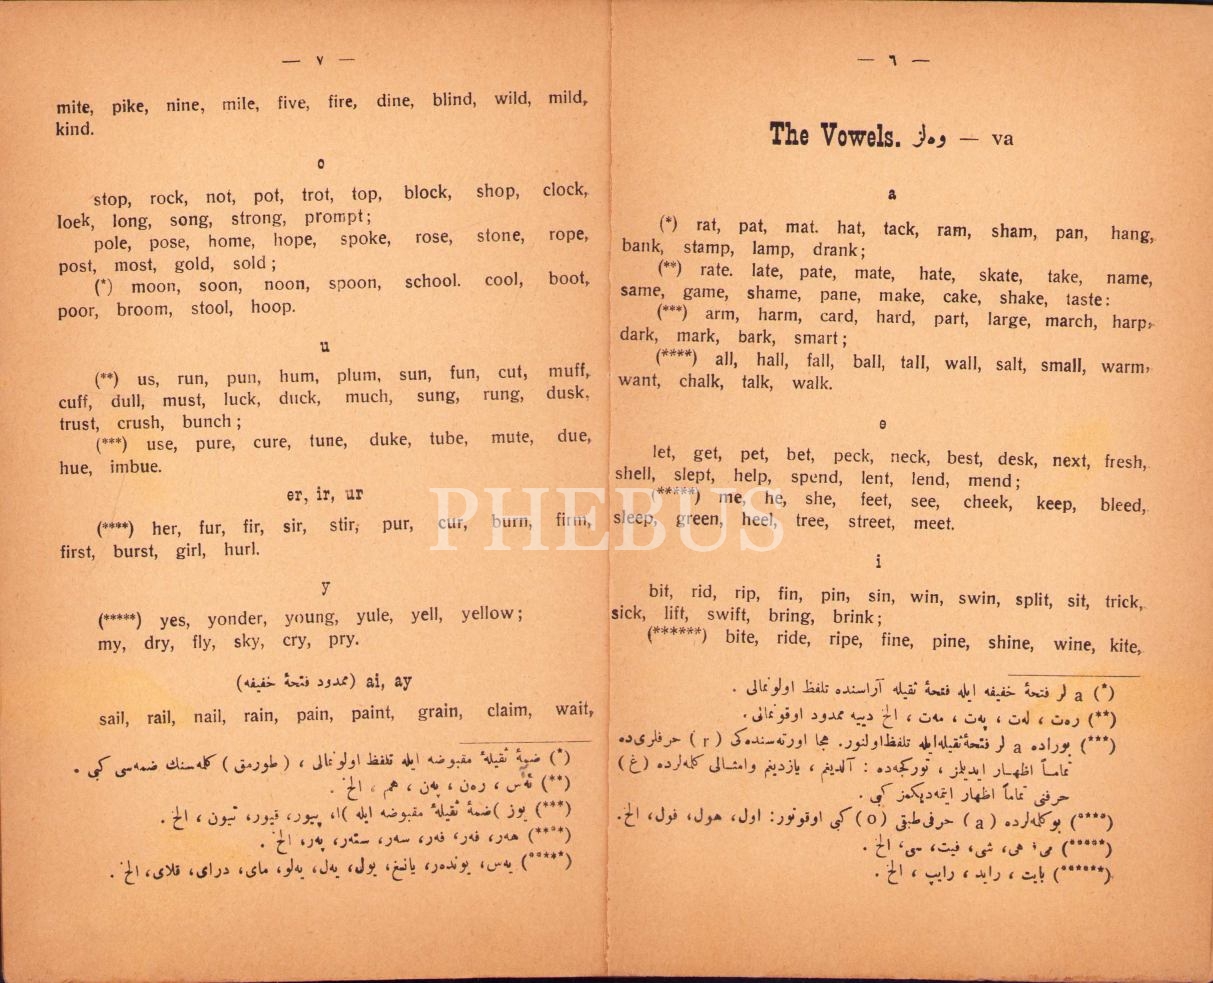 — ٦ —
The Vowels. وەلز — va
a
(*) rat, pat, mat. hat, tack, ram, sham, pan, hang,
bank, stamp, lamp, drank;
(**) rate. late, pate, mate, hate, skate, take, name,
same, game, shame, pane, make, cake, shake, taste:
(***) arm, harm, card, hard, part, large, march, harp,
dark, mark, bark, smart;
(****) all, hall, fall, ball, tall, wall, salt, small, warm,
want, chalk, talk, walk.
e
let, get, pet, bet, peck, neck, best, desk, next, fresh,
shell, slept, help, spend, lent, lend, mend;
(*****) me, he, she, feet, see, cheek, keep, bleed,
sleep, green, heel, tree, street, meet.
i
bit, rid, rip, fin, pin, sin, win, swin, split, sit, trick,
sick, lift, swift, bring, brink;
(******) bite, ride, ripe, fine, pine, shine, wine, kite,
(*) a لر فتحهٔ خفيفه ايله فتحهٔ ثقيله آراسنده تلفظ اولونمالى .
(**) رەت ، لەت ، پەت ، مەت ، الخ دييه ممدود اوقونمالى.
(***) بوراده a لر فتحهٔ ثقيله ايله تلفظ اولنور. هجا اورته‌سنده‌كى ( r ) حرفلرى ده
تماماً اظهار ايديلمز ، توركجه‌ده : آلديغم ، يازديغم وامثالى كله‌لرده (غ)
حرفنى تماماً اظهار ايتمه‌ديكمز كبى .
(****) بو كله‌لرده ( a ) حرفى طبقى (o) كبى اوقونور: اول، هول، فول، الخ.
(*****) مى، هى، شى، فيت، سى، الخ .
(******) بايت ، رايد ، رايپ ، الخ .
— ٧ —
mite, pike, nine, mile, five, fire, dine, blind, wild, mild,
kind.
o
stop, rock, not, pot, trot, top, block, shop, clock,
loek, long, song, strong, prompt;
pole, pose, home, hope, spoke, rose, stone, rope,
post, most, gold, sold;
(*) moon, soon, noon, spoon, school. cool, boot,
poor, broom, stool, hoop.
u
(**) us, run, pun, hum, plum, sun, fun, cut, muff,
cuff, dull, must, luck, duck, much, sung, rung, dusk,
trust, crush, bunch;
(***) use, pure, cure, tune, duke, tube, mute, due,
hue, imbue.
er, ir, ur
(****) her, fur, fir, sir, stir, pur, cur, burn, firm,
first, burst, girl, hurl.
y
(*****) yes, yonder, young, yule, yell, yellow;
my, dry, fly, sky, cry, pry.
ai, ay (ممدود فتحهٔ خفيفه)
sail, rail, nail, rain, pain, paint, grain, claim, wait,
(*) ضمهٔ ثقيلهٔ مقبوضه ايله تلفظ اولونمالى ، ( طورمق ) كله‌سنك ضمه‌سى كبى .
(**) ئەس ، رەن ، پەن ، هم ، الخ .
(***) يوز )ضمهٔ ثقيلهٔ مقبوضه ايله )، پيور، قيور، تيون ، الخ .
(****) هەر، فەر، فەر، سەر، ستەر، پەر، الخ .
(*****) يەس، يوندەر، يانغ، يول، يەل، يەلو، ماى، دراى، فلاى، الخ .
PHEBUS